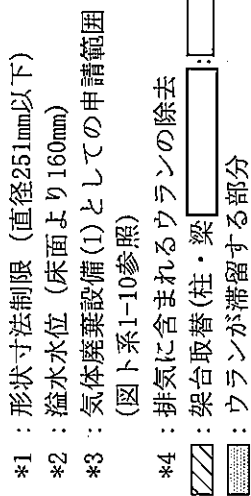 *1 ：形状寸法制限（直径251mm以下）
*2 ：溢水水位（床面より160mm）
*3 ：気体廃棄設備(1)としての申請範囲
（図ト系1-10参照）
*4 ：排気に含まれるウランの除去
：架台取替（柱・梁 ：
：ウランが滞留する部分